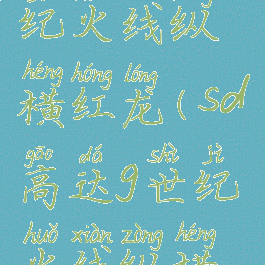 纪火线纵
héng hóng lóng
横红龙(sd
gāo dá shì jì
高达9世纪
huǒ xiàn zòng héng
火线纵横